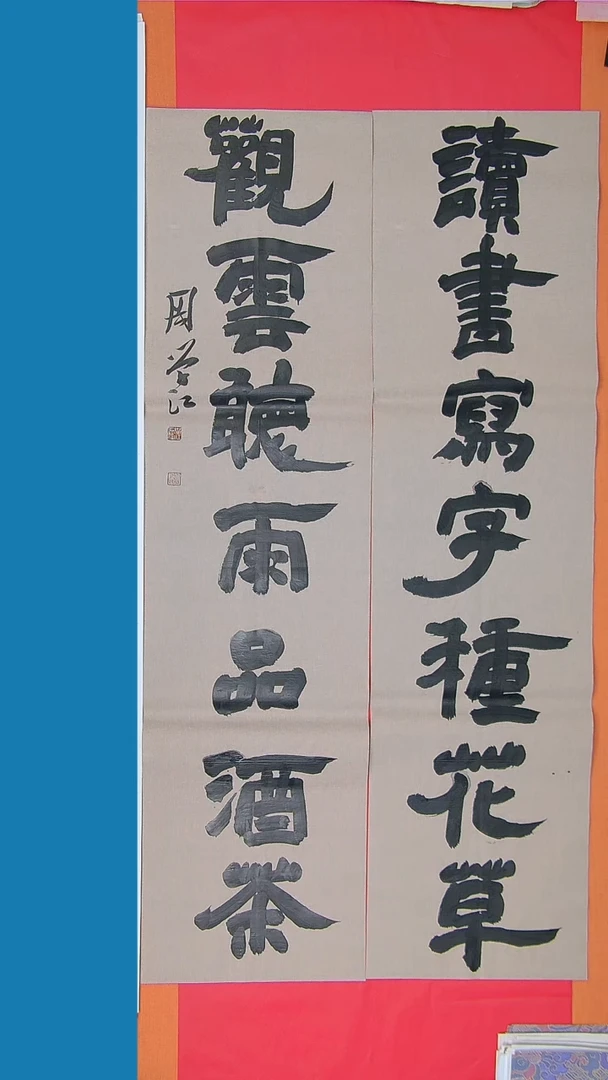 讀書寫字種花草
觀雲聽雨品酒茶
周學江